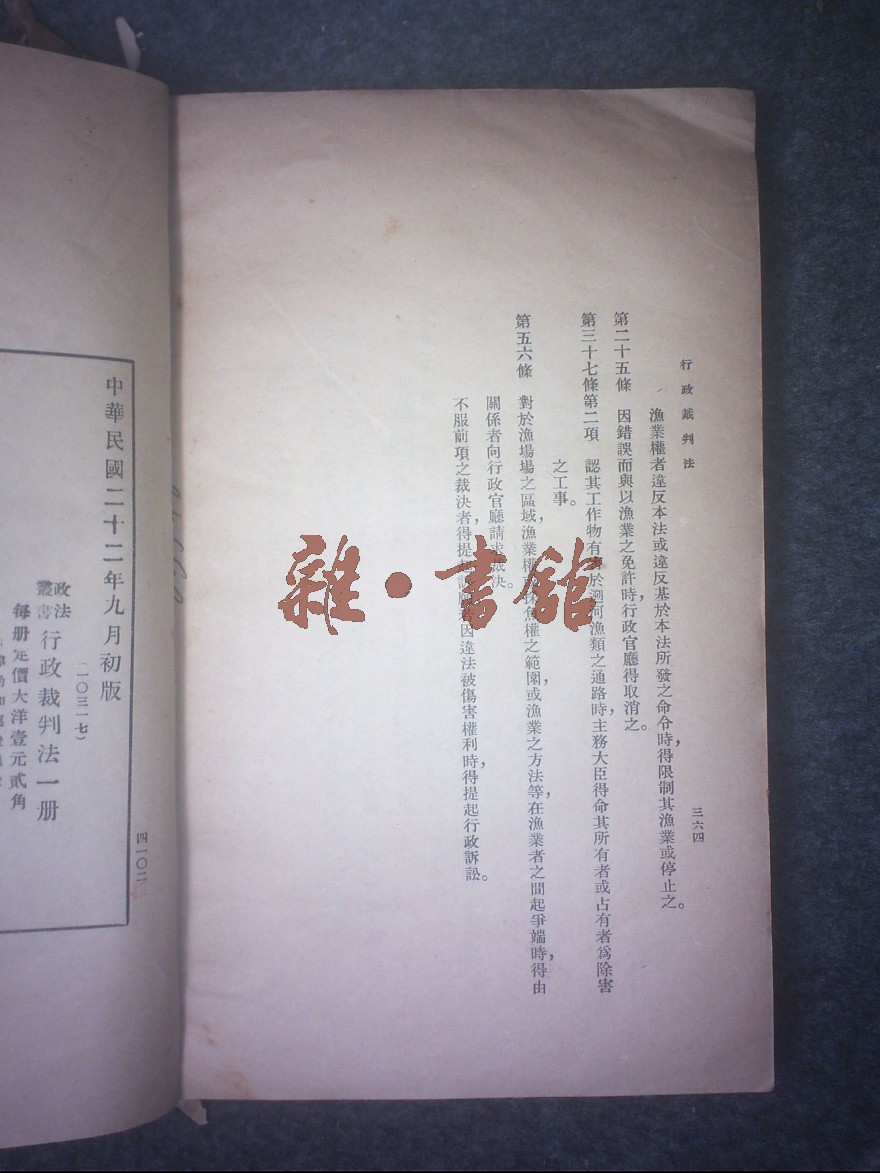 行政裁判法
三六四
漁業權者違反本法或違反基於本法所發之命令時，得限制其漁業或停止之。
第二十五條　因錯誤而與以漁業之免許時，行政官廳得取消之。
第三十七條第二項　認其工作物有害於溯河漁類之通路時，主務大臣得命其所有者或占有者爲除害
之工事。
第五六條　對於漁場場之區域，漁業權之範圍，或漁業之方法等，在漁業者之間起爭端時，得由
關係者向行政官廳請求裁決。
不服前項之裁決者，得提起因違法被傷害權利時，得提起行政訴訟。
中華民國二十二年九月初版
（一〇三一七）
政法叢書 行政裁判法一册
每册定價大洋壹元貳角
四一〇二
雜·書館